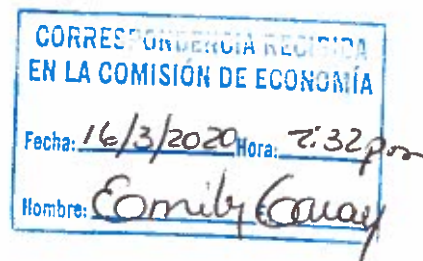 CORRESPONDENCIA RECIBIDA
EN LA COMISIÓN DE ECONOMÍA
Fecha: 16/3/2020 Hora: 2:32 pm
Nombre: Emily